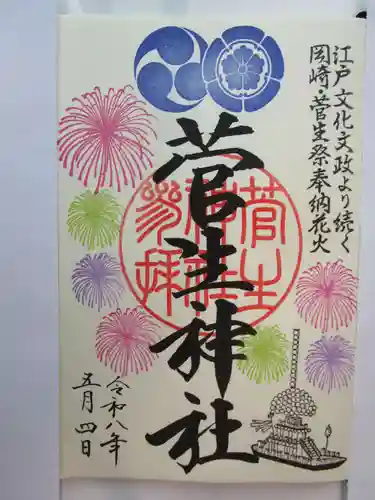 江戸文化文政より続く
岡崎・菅生祭奉納花火
菅生神社
菅生
神社
参拝
令和八年
五月四日